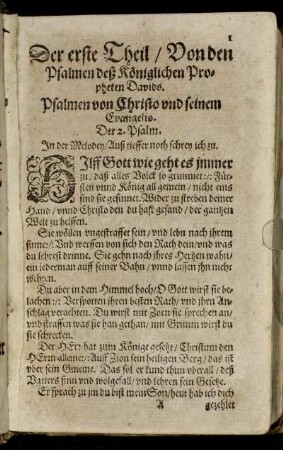 1
Der erste Theil / Von den
Psalmen deß Königlichen Pro-
pheten Davids.
Psalmen von Christo vnd seinem
Evangelio.
Der 2. Psalm.
In der Melodey/ Auß tieffer noth schrey ich zu.
HIlff Gott wie geht es jmmer
zu/ daß alles Volck so grimmet :/: Für-
sten vnnd König all gemein / nicht eins
sind sie gesinnet. Wider zu streben deiner
Hand / vnnd Christo den du hast gesand / der gantzen
Welt zu helffen.
Sie wöllen vngestraffet sein / vnd lebn nach jhrem
sinne :/: Vnd werffen von sich den Rath dein/ vnd was
du lehrest drinne. Sie gehn nach jhres Hertzen wahn/
ein jederman auff seiner Bahn / vnnd lassen jhn nicht
wehren.
Du aber in dem Himmel hoch/ O Gott wirst sie be-
lachen :/: Verspotten jhren besten Rath/ vnd jhrn An-
schlag verachten. Du wirst mit Zorn sie sprechen an/
vnd straffen was sie han gethan/ mit Grimm wirst du
sie schrecken.
Der HErr hat zum Könige gesetzt/ Christum den
HErrn alleine :/: Auff Zion sein heiligen Berg/ das ist
vber sein Gmeine. Das sol er kund thun vberall / deß
Vatters sinn vnd wolgefall/ vnd lehren sein Gesetze.
Er sprach zu jm du bist mein Son/ heut hab ich dich
A gezehlet